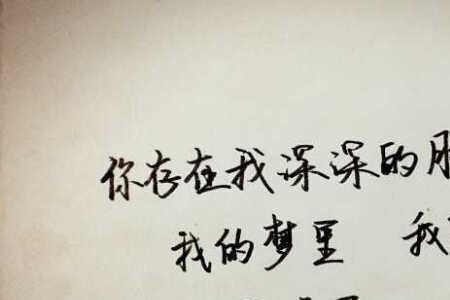 你存在我深深的
我的梦里 我